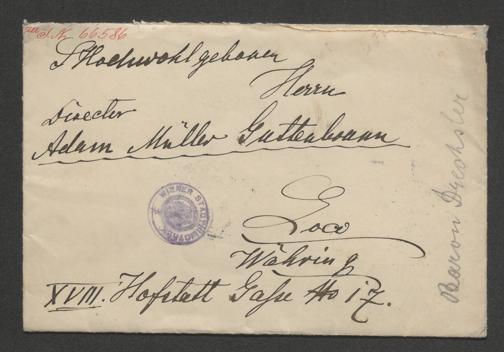 zu I.N. 66586
Sr Hochwohlgeboren
Herrn
Director
Adam Müller Guttenbrunn
WIENER STADTBIBLIOTHEK
Loco
Währing
XVIII. Hofstatt Gasse No 17.
Baron Drechsler